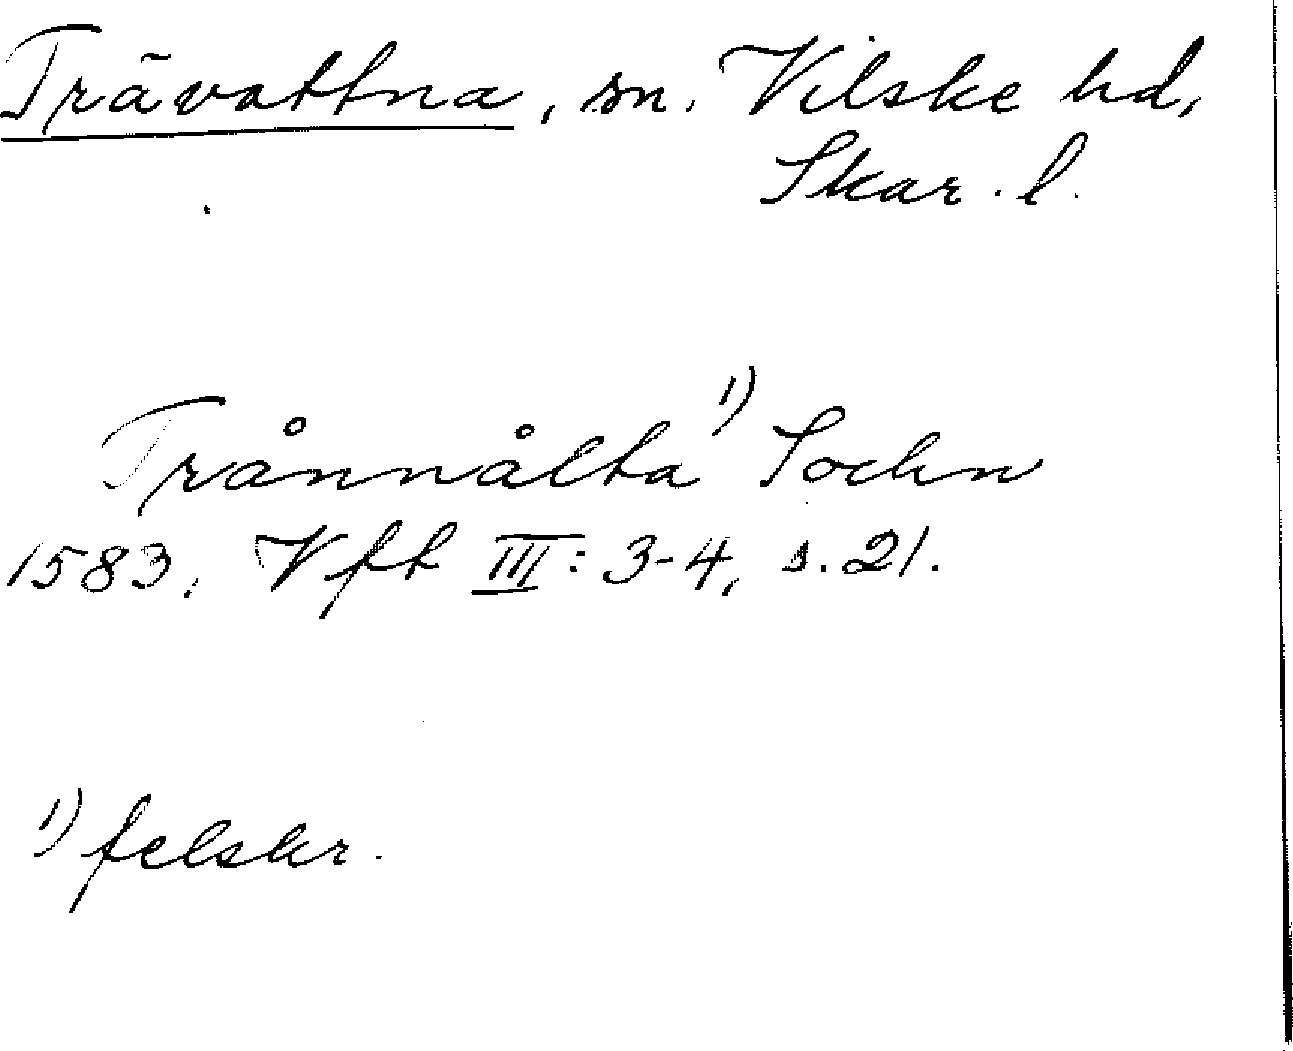 Trävattna, sn. Vilske hd,
Skar. l.
Trånnålta 1) Sochn
1583, Vft III: 3-4, s. 21.
1) felskr.